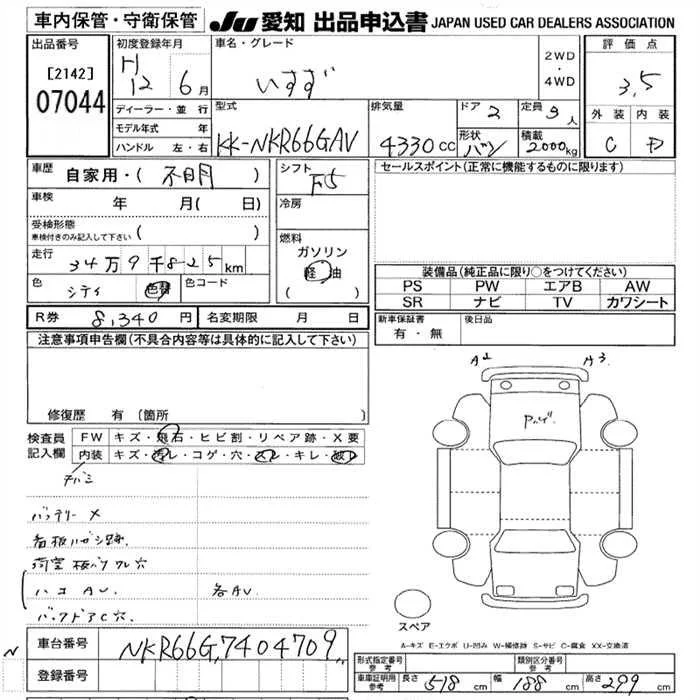 車内保管・守衛保管
JU 愛知 出品申込書 JAPAN USED CAR DEALERS ASSOCIATION
出品番号
[2142]
07044
初度登録年月
H 12 6月
車名・グレード
いすず
2WD
・
4WD
評価点
3,5
外装 内装
C D
ディーラー・並行
モデル年式 年
ハンドル 左・右
型式
KK-NKR66GAV
排気量
4330cc
ドア 2
形状 バン
定員 3人
積載 2000kg
車歴 自家用・( 不明 )
車検 年 月( 日)
受検形態
車検付きのみ記入して下さい ( )
走行 34万9千825km
色 シティ 色替 色コード
シフト F5
冷房
燃料
ガソリン
軽油
( )
セールスポイント(正常に機能するものに限ります)
装備品(純正品に限り○をつけてください)
PS PW エアB AW
SR ナビ TV カワシート
新車保証書
有・無
後日品
R券 8,340円 名変期限 月 日
注意事項申告欄(不具合内容等は具体的に記入して下さい)
修復歴 有(箇所 )
検査員
記入欄
FW キズ・飛石・ヒビ割・リペア跡・X要
内装 キズ・汚レ・コゲ・穴・スレ・キレ・破レ
バッテリー X
看板ハガシ跡
ハコ AU 各AU
バックドアC穴
A2 A3
スペア
A-キズ E-エクボ U-凹み W-補修跡 S-サビ C-腐食 XX-交換済
N
車台番号 NKR66G,7404709
登録番号
形式指定番号
参考
類別区分番号
参考
車庫証明用
参考
長さ 518cm 幅 188cm 高さ 299cm